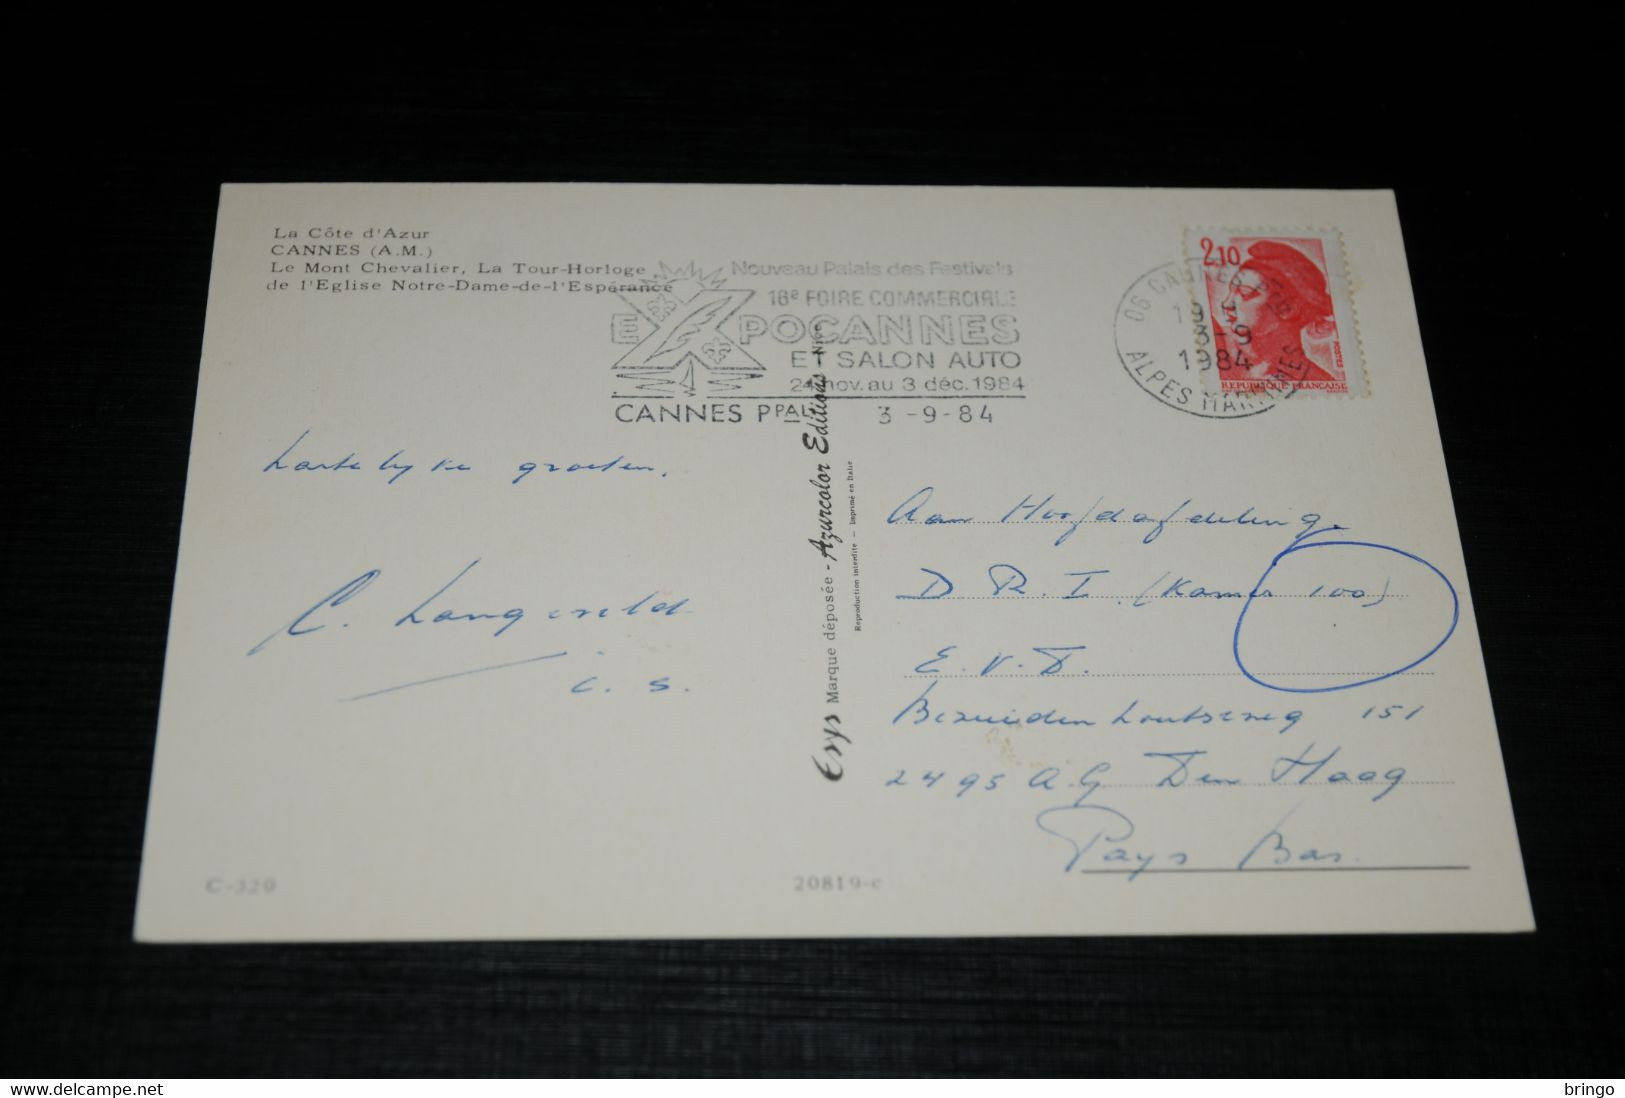 La Côte d'Azur
CANNES (A.M.)
Le Mont Chevalier, La Tour-Horloge
de l'Eglise Notre-Dame-de-l'Espérance
Nouveau Palais des Festivals
16e FOIRE COMMERCIALE
EXPOCANNES
ET SALON AUTO
24 nov. au 3 déc. 1984
CANNES PPAL 3-9-84
06 CANNES PPAL
19 H
3-9
1984
ALPES MARITIMES
2,10
POSTES
REPUBLIQUE FRANÇAISE
hartelijke groeten.
C. Langeveld
c.s.
Erys Marque déposée - Azurcolor Editions - Nice
Reproduction interdite — Imprimé en Italie
Aan Hoofdafdeling
D R.I. (Kamer 100)
E.V.D.
Bezuidenhoutseweg 151
2495 A.G Den Haag
Pays Bas.
C-320
20819-c
delcampe.net
bringo